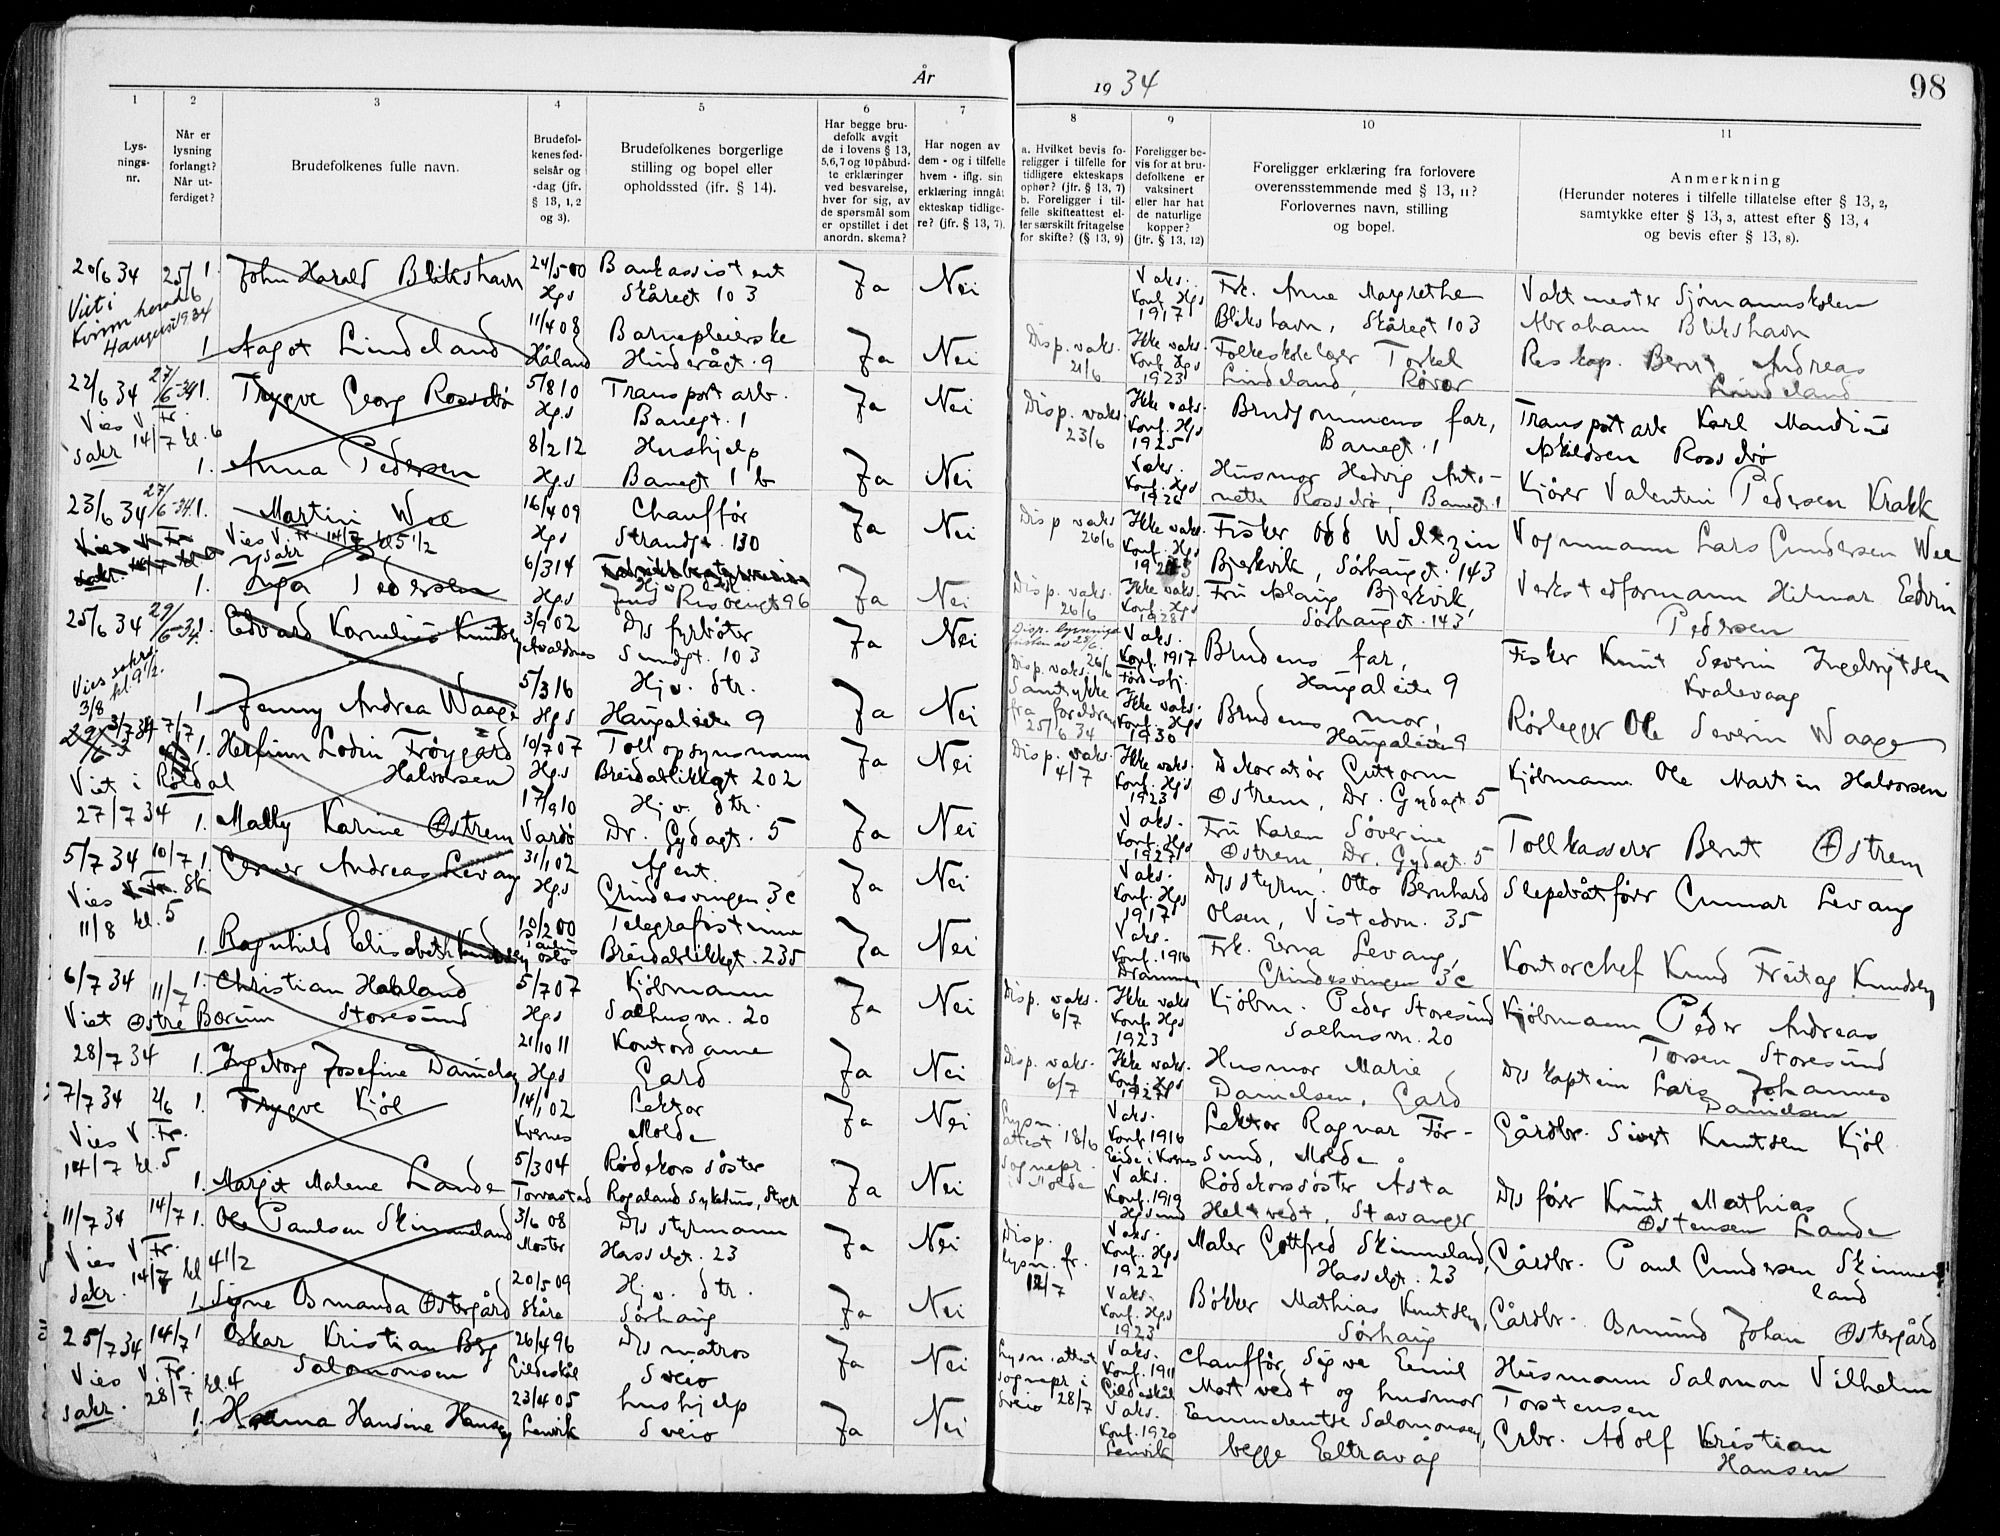 År
19 34
98
1
2
3
4
5
6
7
8
9
10
11
Lys-
nings-
nr.
Når er
lysning
forlangt?
Når ut-
ferdiget?
Brudefolkenes fulle navn.
Brudefol-
kenes fød-
selsår og
-dag (jfr.
§ 13, 1, 2
og 3).
Brudefolkenes borgerlige
stilling og bopel eller
opholdssted (jfr. § 14).
Har begge bru-
defolk avgit
de i lovens § 13,
5,6,7 og 10 påbud-
te erklæringer
ved besvarelse,
hver for sig, av
de spørsmål som
er opstillet i det
anordn. skema?
Har nogen av
dem - og i tilfelle
hvem - iflg. sin
erklæring inngåt
ekteskap tidlige-
re? (jfr. § 13, 7).
a. Hvilket bevis fo-
religger i tilfelle for
tidligere ekteskaps
ophør? (jfr. § 13, 7)
b. Foreligger i til-
felle skifteattest el-
ler særskilt fritagelse
for skifte? (§ 13, 9)
Foreligger be-
vis for at bru-
defolkene er
vaksinert
eller har hat
de naturlige
kopper?
(jfr. § 13, 12)
Foreligger erklæring fra forlovere
overensstemmende med § 13, 11?
Forlovernes navn, stilling
og bopel.
Anmerkning
(Herunder noteres i tilfelle tillatelse efter § 13, 2,
samtykke efter § 13, 3, attest efter § 13, 4
og bevis efter § 13, 8).
20/6 34 1. John Harald Blikshavn 24/5 00 Bankassistent Ja Nei Vaks. Frk. Anne Margrethe Vaktmester Sjømannsskolen
Viet i Hgs Skåregt 103 Konf. Hgs 1917 Blikshavn, Skåregt 103 Abraham Blikshavn
1 Aagot Lindeland 11/4 08 Barnepleierske Ja Nei Disp. vaks. 21/6 Ikke vaks. Folkeskolelær Torkel Res. kap. Bernt Andreas
Håland Hinderågt. 9 Konf. Hgs 1923 Lindeland, Røvær Lindeland
22/6 34 27/6-34 1. Trygve Georg Rossebø 5/8 10 Transportarb. Ja Nei Disp. vaks. 23/6 Ikke vaks. Brudgommens far, Transportarb Karl Mandius
Vies V. Fr. Hgs Banegt. 1 Konf. Hgs 1925 Banegt. 1 Rossebø
sakr 14/7 kl. 6
1. Anna Pedersen 8/2 12 Hushjelp Ja Nei Vaks. Husmor Hedvig Anto- Kjører Valentin Pedersen Krakk
Hgs Banegt 1 b Konf. Hgs 1926 nette Rossebø, Banegt 1
23/6 34 27/6-34 1. Martin Wee 16/4 09 Chauffør Ja Nei Disp vaks 26/6 Ikke vaks. Fisker Odd Weltzin Vognmann Lars Gundersen Wee
Vies V. Fr. 14/7 kl 5 1/2 Hgs Strandgt. 130 Konf. Hgs Bjerkvik, Sørhauggt. 143
sakr
1. Inga Pedersen 6/3 14 Ja Nei Disp. vaks. 26/6 Ikke vaks. Fru Bjerkvik, Verkstedformann Hilmar Edvin
Hgs Risøengt 96 Konf. Hgs 1928 Sørhauggt. 143 Pedersen
25/6 34 29/6-34 1. Edvard Kornelius Knutsen 3/9 02 D/s fyrbøter Ja Nei Vaks. Brudens far, Fisker Knut Severin Ingebrigtsen
Vies sakr. Avaldsnes Sundgt. 103 Konf. 1917 Haugaleite 9 Kvalevaag
3/8 kl. 9 1/2.
1 Jenny Andrea Waage 5/3 16 Hjv. dtr. Ja Nei Disp. vaks. 26/6 Samtykke fra foreldre 25/6 34 Ikke vaks. Brudens mor, Rørlegger Ole Severin Waage
Hgs Haugaleite 9 Konf. Hgs 1930 Haugaleite 9
3/7 34 7/7 1. Herfinn Lodin Frøygård 10/7 07 Tollopsynsmann Ja Nei Disp. vaks. 4/7 Ikke vaks. Dekoratør Guttorm Kjøbmann Ole Martin Halvorsen
Halvorsen Hgs Breidablikkgt 202 Konf. Hgs 1923 Østrem, Dr. Gydagt. 5
Viet i Røldal
27/7 34 1. Mally Karine Østrem 17/9 10 Hjv. dtr. Ja Nei Vaks. Fru Karen Søverine Tollkasserer Bernt Østrem
Vardø Dr. Gydagt. 5 Konf. Hgs 1927 Østrem, Dr. Gydagt. 5
5/7 34 10/7 1. Andreas Levang 31/1 02 Agent Ja Nei Vaks. D/s styrm. Otto Bernhard Slepebåtfører Gunnar Levang
Vies Sk Hgs Grindesvingen 3c Konf. Hgs 1917 Olsen, Vistedvn. 35
11/8 kl. 5
1. Ragnhild Elisabeth Knudsen 10/2 00 Telegrafistinne Ja Nei Vaks. Frk. Erna Levang, Kontorchef Knud Freitag Knudsen
Oslo Breidablikkgt. 235 Konf. 1916 Drammen Grindesvingen 3c
6/7 34 11/7 1. Christian Haaland 5/7 07 Kjøbmann Ja Nei Disp. vaks. 6/7 Ikke vaks Kjøbm. Peder Storesund Kjøbmann Peder Andreas
Viet Østre Bærum Storesund Hgs Salhusvn. 20 Konf. Hgs 1923 Salhusvn. 20 Torsen Storesund
28/7 34 1. Ingeborg Josefine Danielsen 21/10 11 Kontordame Ja Nei Disp. vaks. 6/7 Ikke vaks. Husmor Marie D/s kaptein Lars Johannes
Hgs Gard Konf. Hgs 1927 Danielsen, Gard Danielsen
7/7 34 2/6 1. Trygve Kjøl 14/1 02 Lektor Ja Nei Lysn. attest 18/6 sognepr. i Molde Vaks. Lektor Ragnar Før- Gårdbr. Sivert Knutsen Kjøl
Vies V. Fr. Kvernes Molde Konf. 1916 Eide i Kvernes sund, Molde
14/7 kl. 5
1. Margit Malene Lande 5/3 04 Rødekorssøster Ja Nei Vaks. Rødekorssøster Asta D/s fører Knut Mathias
Torvastad Rogaland sykehus, Stvgr Konf. 1919 Hgsund Heltvedt, Stavanger Østensen Lande
11/7 34 14/7 1. Ole Paulsen Skimmeland 3/6 08 D/s styrmann Ja Nei Disp. lysn. fr. 12/7 Vaks. Maler Gottfred Skimmeland, Gårdbr. Paul Gundersen Skimme-
Vies V. Fr. Moster Hasselgt. 23 Konf. Hgs 1922 Hasselgt. 23 land
sakr. 14/7 kl 4 1/2
1. Signe Osmanda Østergård 20/5 09 Hjv. dtr. Ja Nei Vaks. Bøkker Mathias Knutsen, Gårdbr. Osmund Johan Østergård
Skåre Sørhaug Konf. Hgs 1923 Sørhaug
25/7 34 14/7 1 Oskar Kristian Berg 26/4 96 D/s matros Ja Nei Lysn. attest sognepr i Sveio 28/7 Vaks. Chauffør Sigve Emil Husmann Salomon Vilhelm
Vies V. Fr. Salomonsen Gildeskål Sveio Konf. 1911 Gildeskål Mortvedt og husmor Torstensen
sakr. 28/7 kl. 4
1. Hanna Hansine Hansen 23/4 05 hushjelp Ja Nei Vaks. Emmerentse Salomonsen, Grbr. Adolf Kristian
Lenvik Sveio Konf. 1920 Lenvik begge Eltravåg Hansen